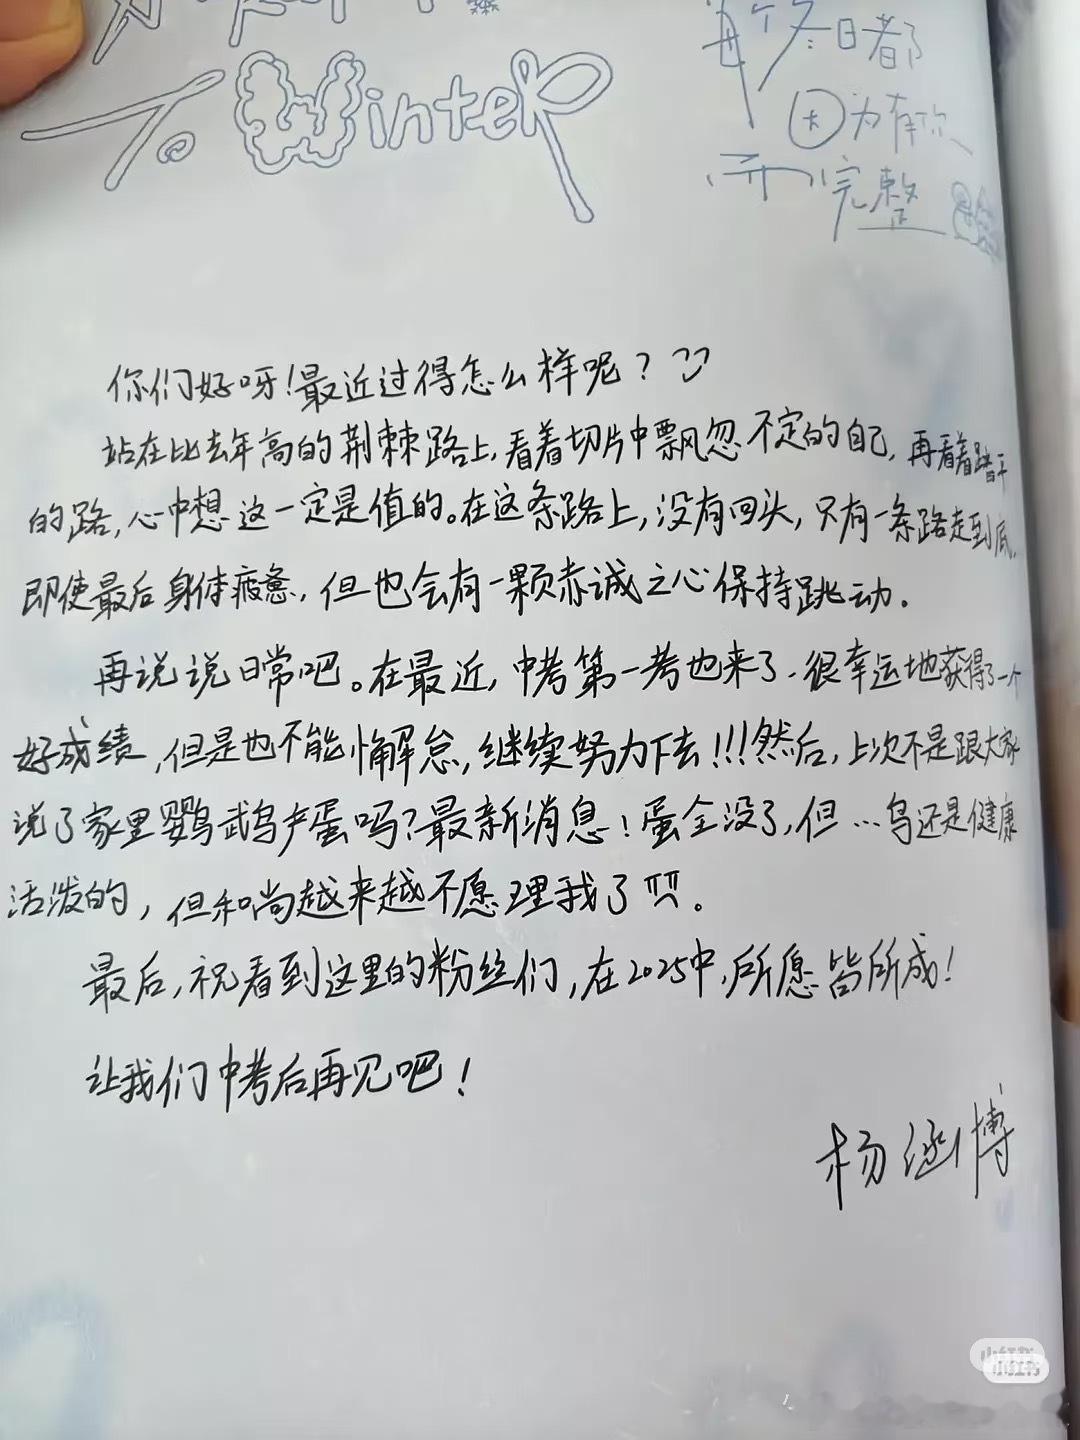 To Winter
每个冬日都
因为有你
而完整
你们好呀!最近过得怎么样呢?
站在比去年高的荆棘路上,看着切片中飘忽不定的自己,再看着踏平
的路,心中想这一定是值的。在这条路上,没有回头,只有一条路走到底,
即使最后身体疲惫,但也会有一颗赤诚之心保持跳动.
再说说日常吧。在最近,中考第一考也来了.很幸运地获得了一个
好成绩,但是也不能懈怠,继续努力下去!!!然后,上次不是跟大家
说了家里鹦鹉产蛋吗?最新消息!蛋全没了,但…鸟还是健康
活泼的,但和尚越来越不愿理我了。
最后,祝看到这里的粉丝们,在2025中,所愿皆所成!
让我们中考后再见吧!
杨涵博
小红书
小红书